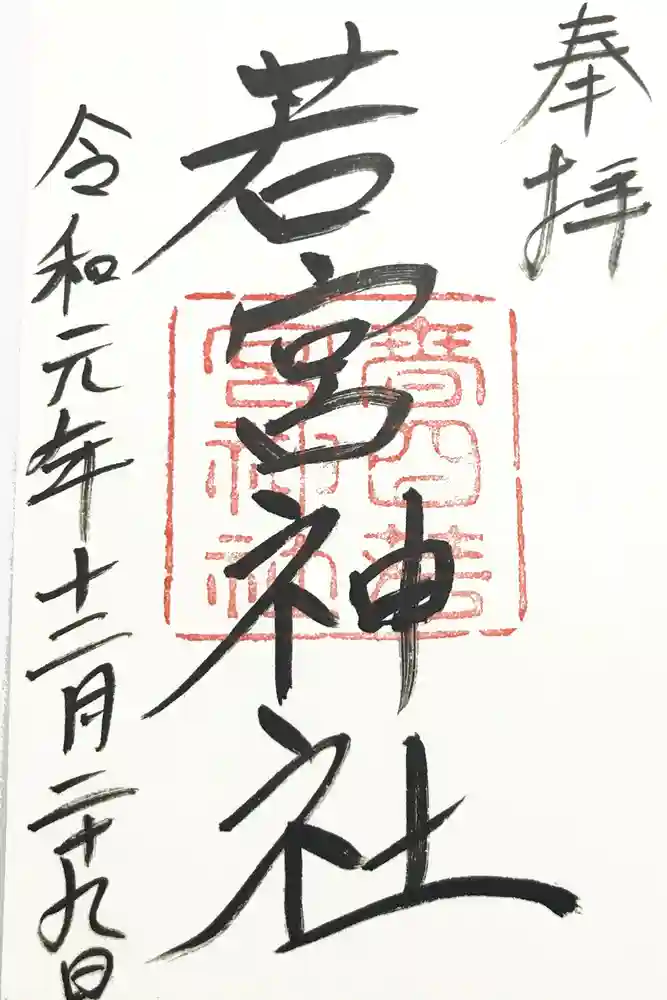 奉拝
若宮神社
若
宮神社
令和元年十二月二十九日